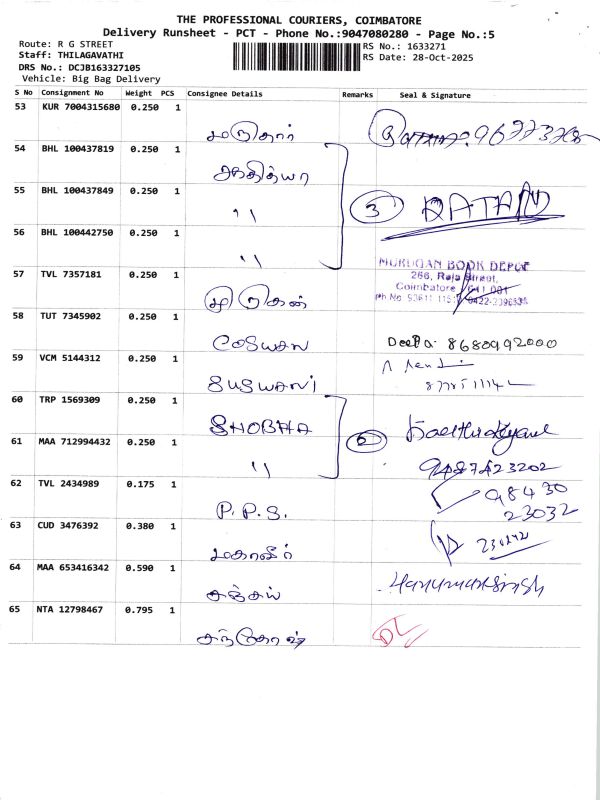 THE PROFESSIONAL COURIERS, COIMBATORE
Delivery Runsheet - PCT - Phone No.:9047080280 - Page No.:5
Route: R G STREET
RS No.: 1633271
Staff: THILAGAVATHI
RS Date: 28-Oct-2025
DRS No.: DCJB163327105
Vehicle: Big Bag Delivery
S No Consignment No Weight PCS Consignee Details Remarks Seal & Signature
53 KUR 7004315680 0.250 1
54 BHL 100437819 0.250 1 ஆதித்யா
55 BHL 100437849 0.250 1 " 3 RATAN
56 BHL 100442750 0.250 1 "
MURUGAN BOOK DEPOT
266, Raja Street,
Coimbatore 641 001
57 TVL 7357181 0.250 1 முருகன்
58 TUT 7345902 0.250 1 Deepa 8680992000
59 VCM 5144312 0.250 1
60 TRP 1569309 0.250 1 SHOBHA
61 MAA 712994432 0.250 1 " 2 9487423202
62 TVL 2434989 0.175 1 P.P.S. 98430
23032
63 CUD 3476392 0.380 1 மகாவீர்
64 MAA 653416342 0.590 1 சஞ்சய்
65 NTA 12798467 0.795 1 சந்தோஷ் DL